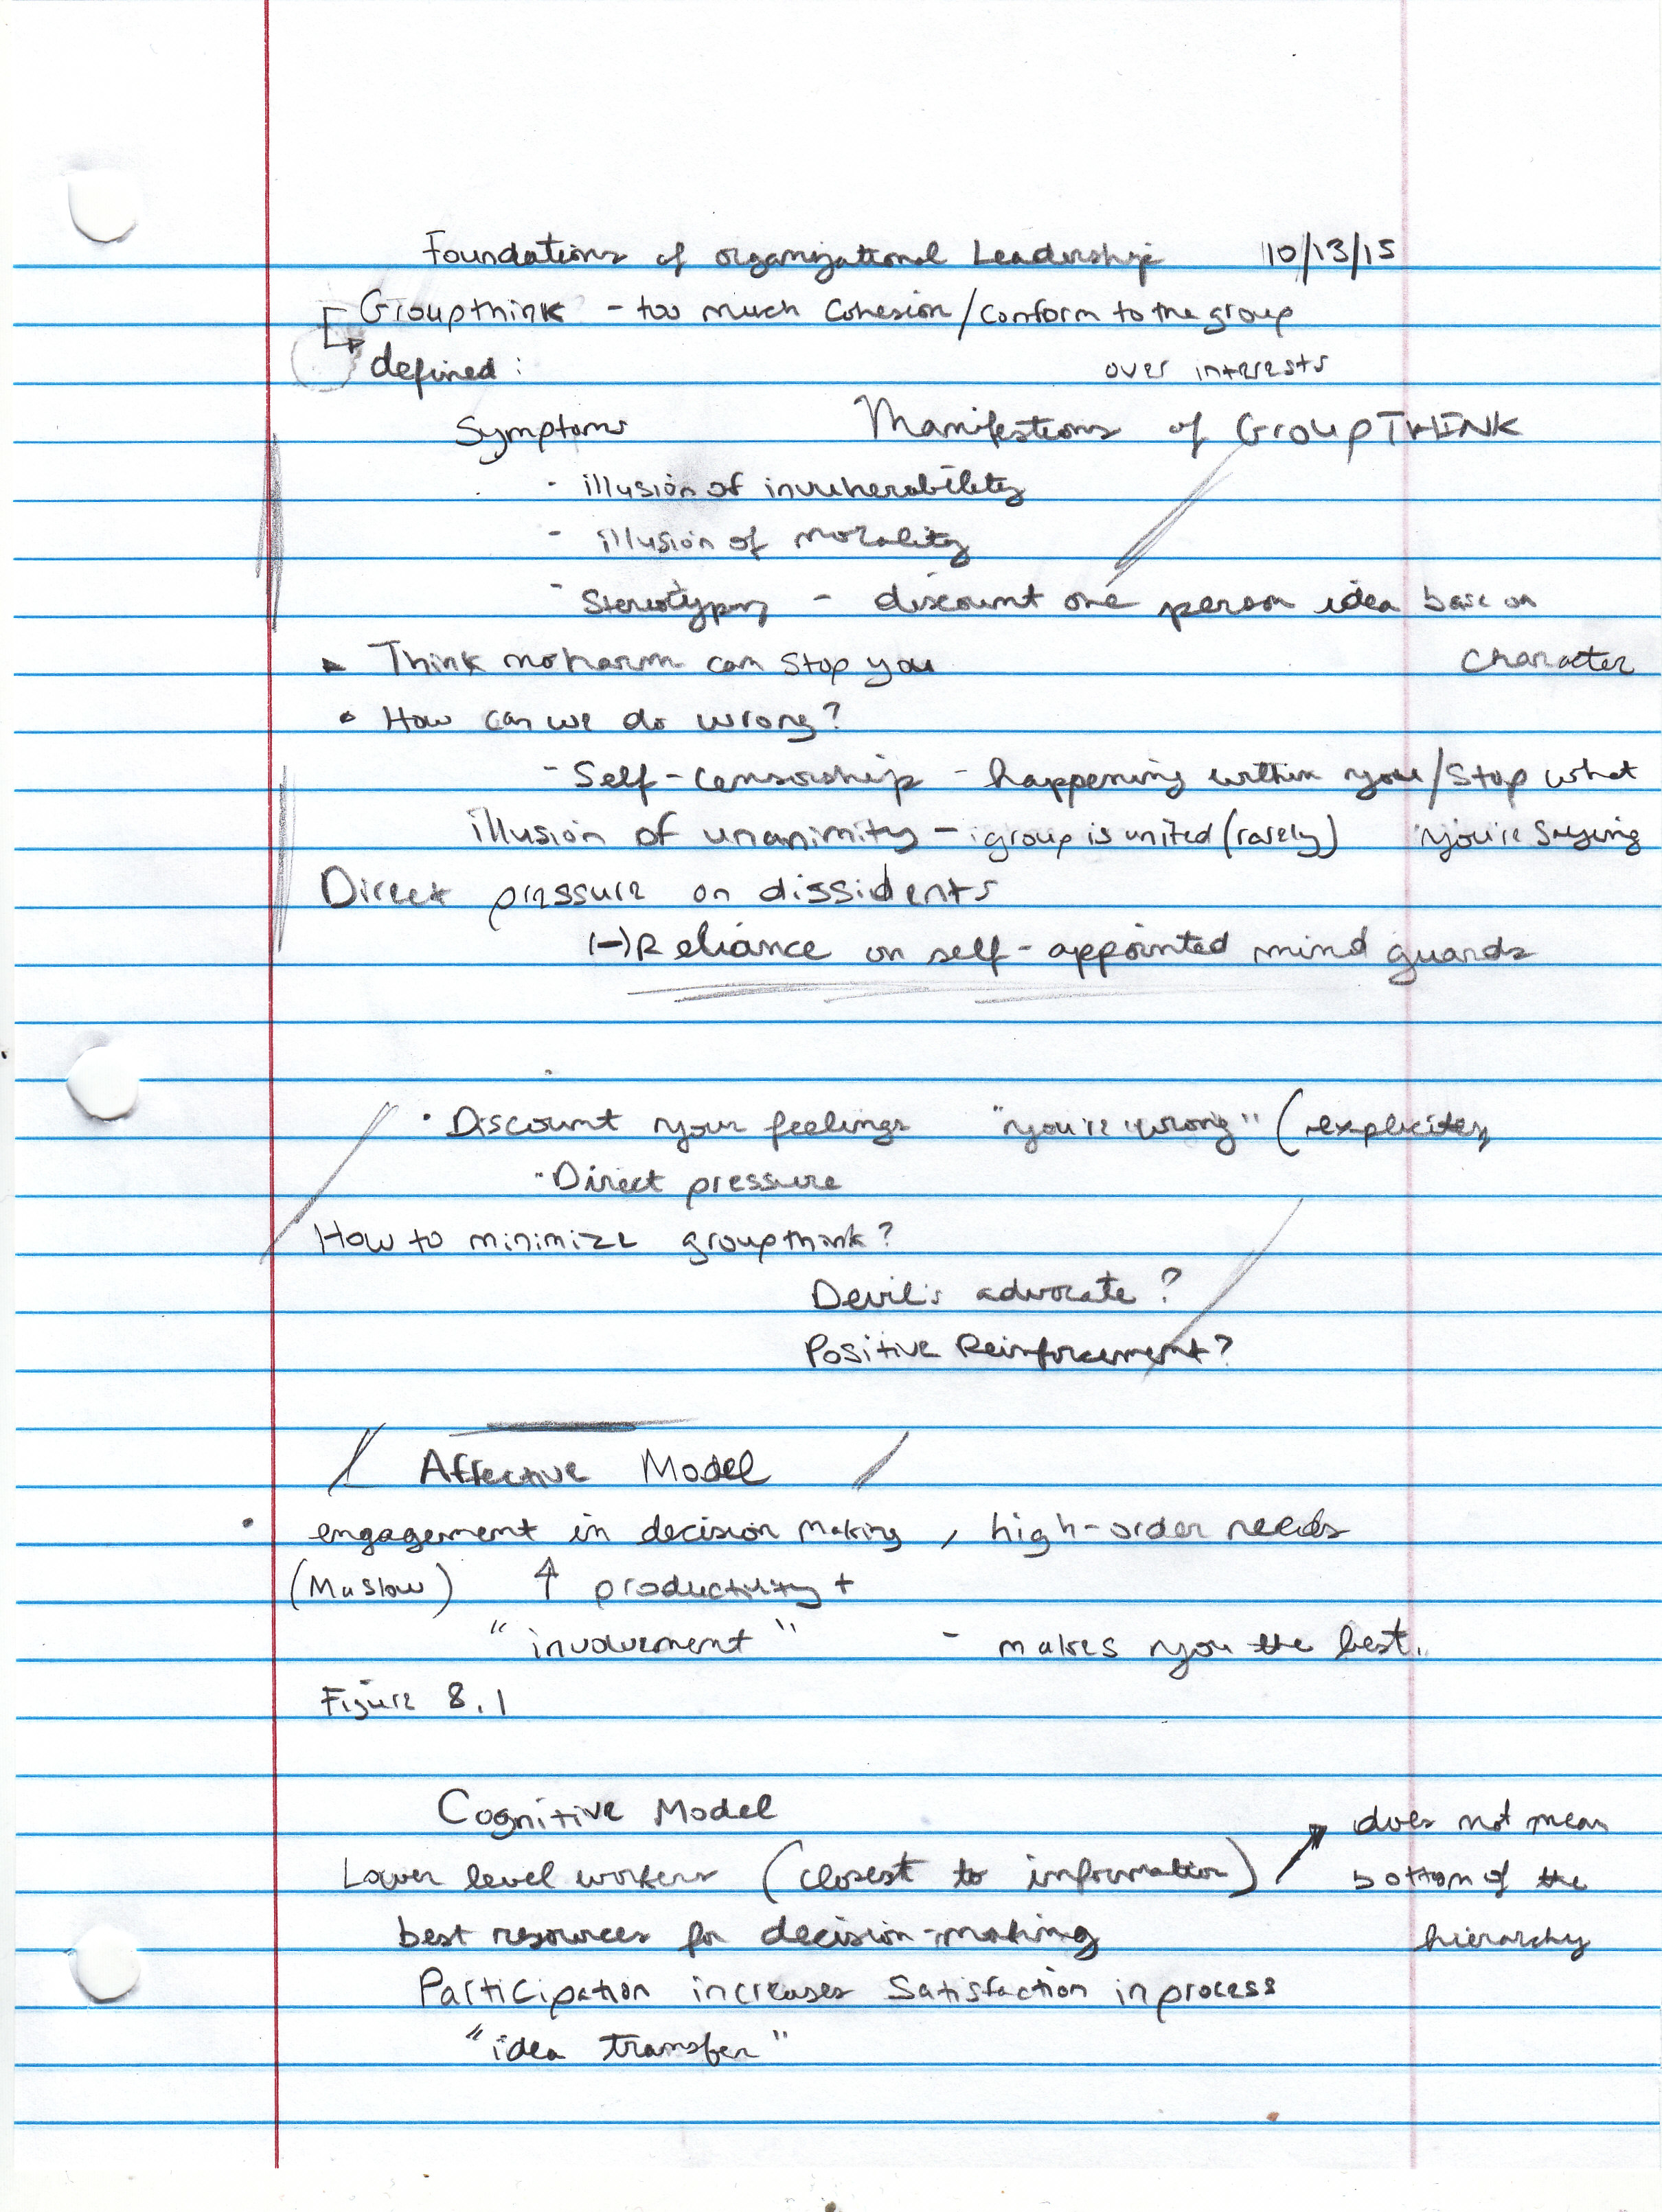 Foundations of organizational Leadership 10/13/15
Groupthink - too much Cohesion/conform to the group
defined: over interests
Symptoms Manifestions of GroupTHINK
- illusion of invulnerability
- illusion of morality
- Stereotyping - discount one person idea base on
Think no harm can stop you character
• How can we do wrong?
- Self-censorship - happening within you/stop what
illusion of unanimity - group is united (rarely) you're saying
Direct pressure on dissidents
(-) Reliance on self-appointed mind guards
• Discount your feelings "you're wrong" (explicitey
- Direct pressure
How to minimize groupthink?
Devil's advocate?
Positive Reinforcement?
Affective Model
• engagement in decision making, high-order needs
(Maslow) ↑ productivity +
"involvement" - makes you the best.
Figure 8.1
Cognitive Model
does not mean
Lower level workers (closest to information) ↗ bottom of the
best resources for decision-making hierarchy
Participation increases Satisfaction in process
"idea transfer"